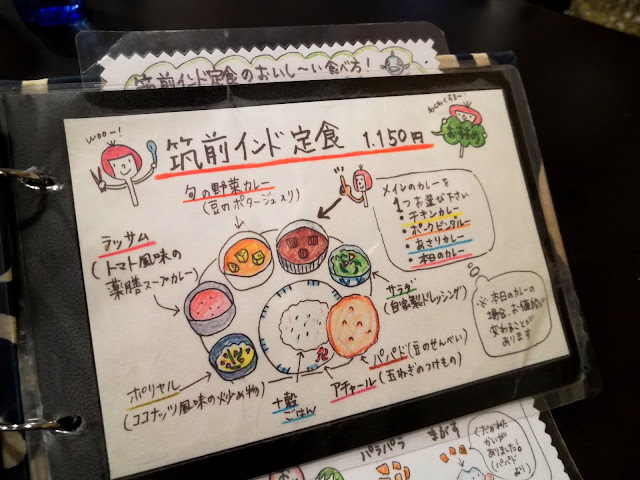 筑前インド定食のおいし〜い食べ方!
woo〜!
筑前インド定食 1.150円
旬の野菜カレー
(豆のポタージュ入り)
メインのカレーを
1つお選び下さい
・チキンカレー
・ポークビンダル
・あさりカレー
・本日のカレー
ラッサム
(トマト風味の
薬膳スープカレー)
サラダ
(自家製ドレッシング)
※本日のカレーの
場合、お値段が
変わることが
あります
パパド(豆のせんべい)
アチャール(玉ねぎのつけもの)
ポリヤル
(ココナッツ風味の炒め物)
十穀
ごはん
パラパラ
まぜる
くだかれた
かいが
ありました!
(パパド
より)